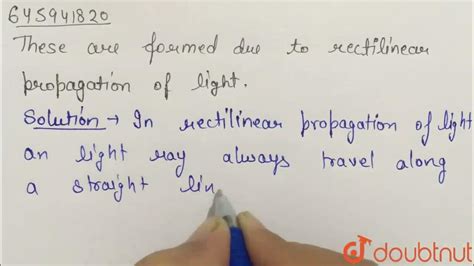 645941820
These are formed due to rectilinear
propagation of light.
Solution → In rectilinear propagation of light
an light ray always travel along
a straight lin
doubtnut